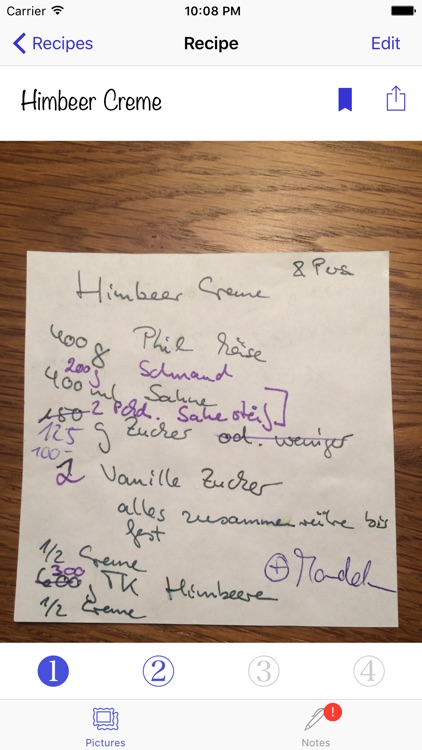 Carrier 10:08 PM
Recipes Recipe Edit
Himbeer Creme
8 Pers
Himbeer Creme
400 g Phil Käse
200 g Schmand
400 ml Sahne
2 Pckch. Sahnesteif
150
125 g Zucker od. weniger
100-
2 Vanille Zucker
alles zusammen rühre bis
fest
1/2 Creme
300
600 g TK Himbeere
⊕ Mandeln
1/2 Creme
1 2 3 4
!
Pictures Notes